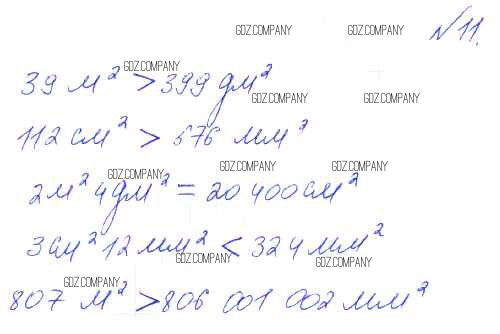 GDZ.COMPANY GDZ.COMPANY №11.
GDZ.COMPANY
39 м² > 399 дм²
GDZ.COMPANY GDZ.COMPANY
112 см² > 576 мм²
GDZ.COMPANY GDZ.COMPANY GDZ.COMPANY
2м² 4дм² = 20 400 см²
3см² 12 мм² < 324 мм²
GDZ.COMPANY GDZ.COMPANY
GDZ.COMPANY
807 м² > 806 001 002 мм²